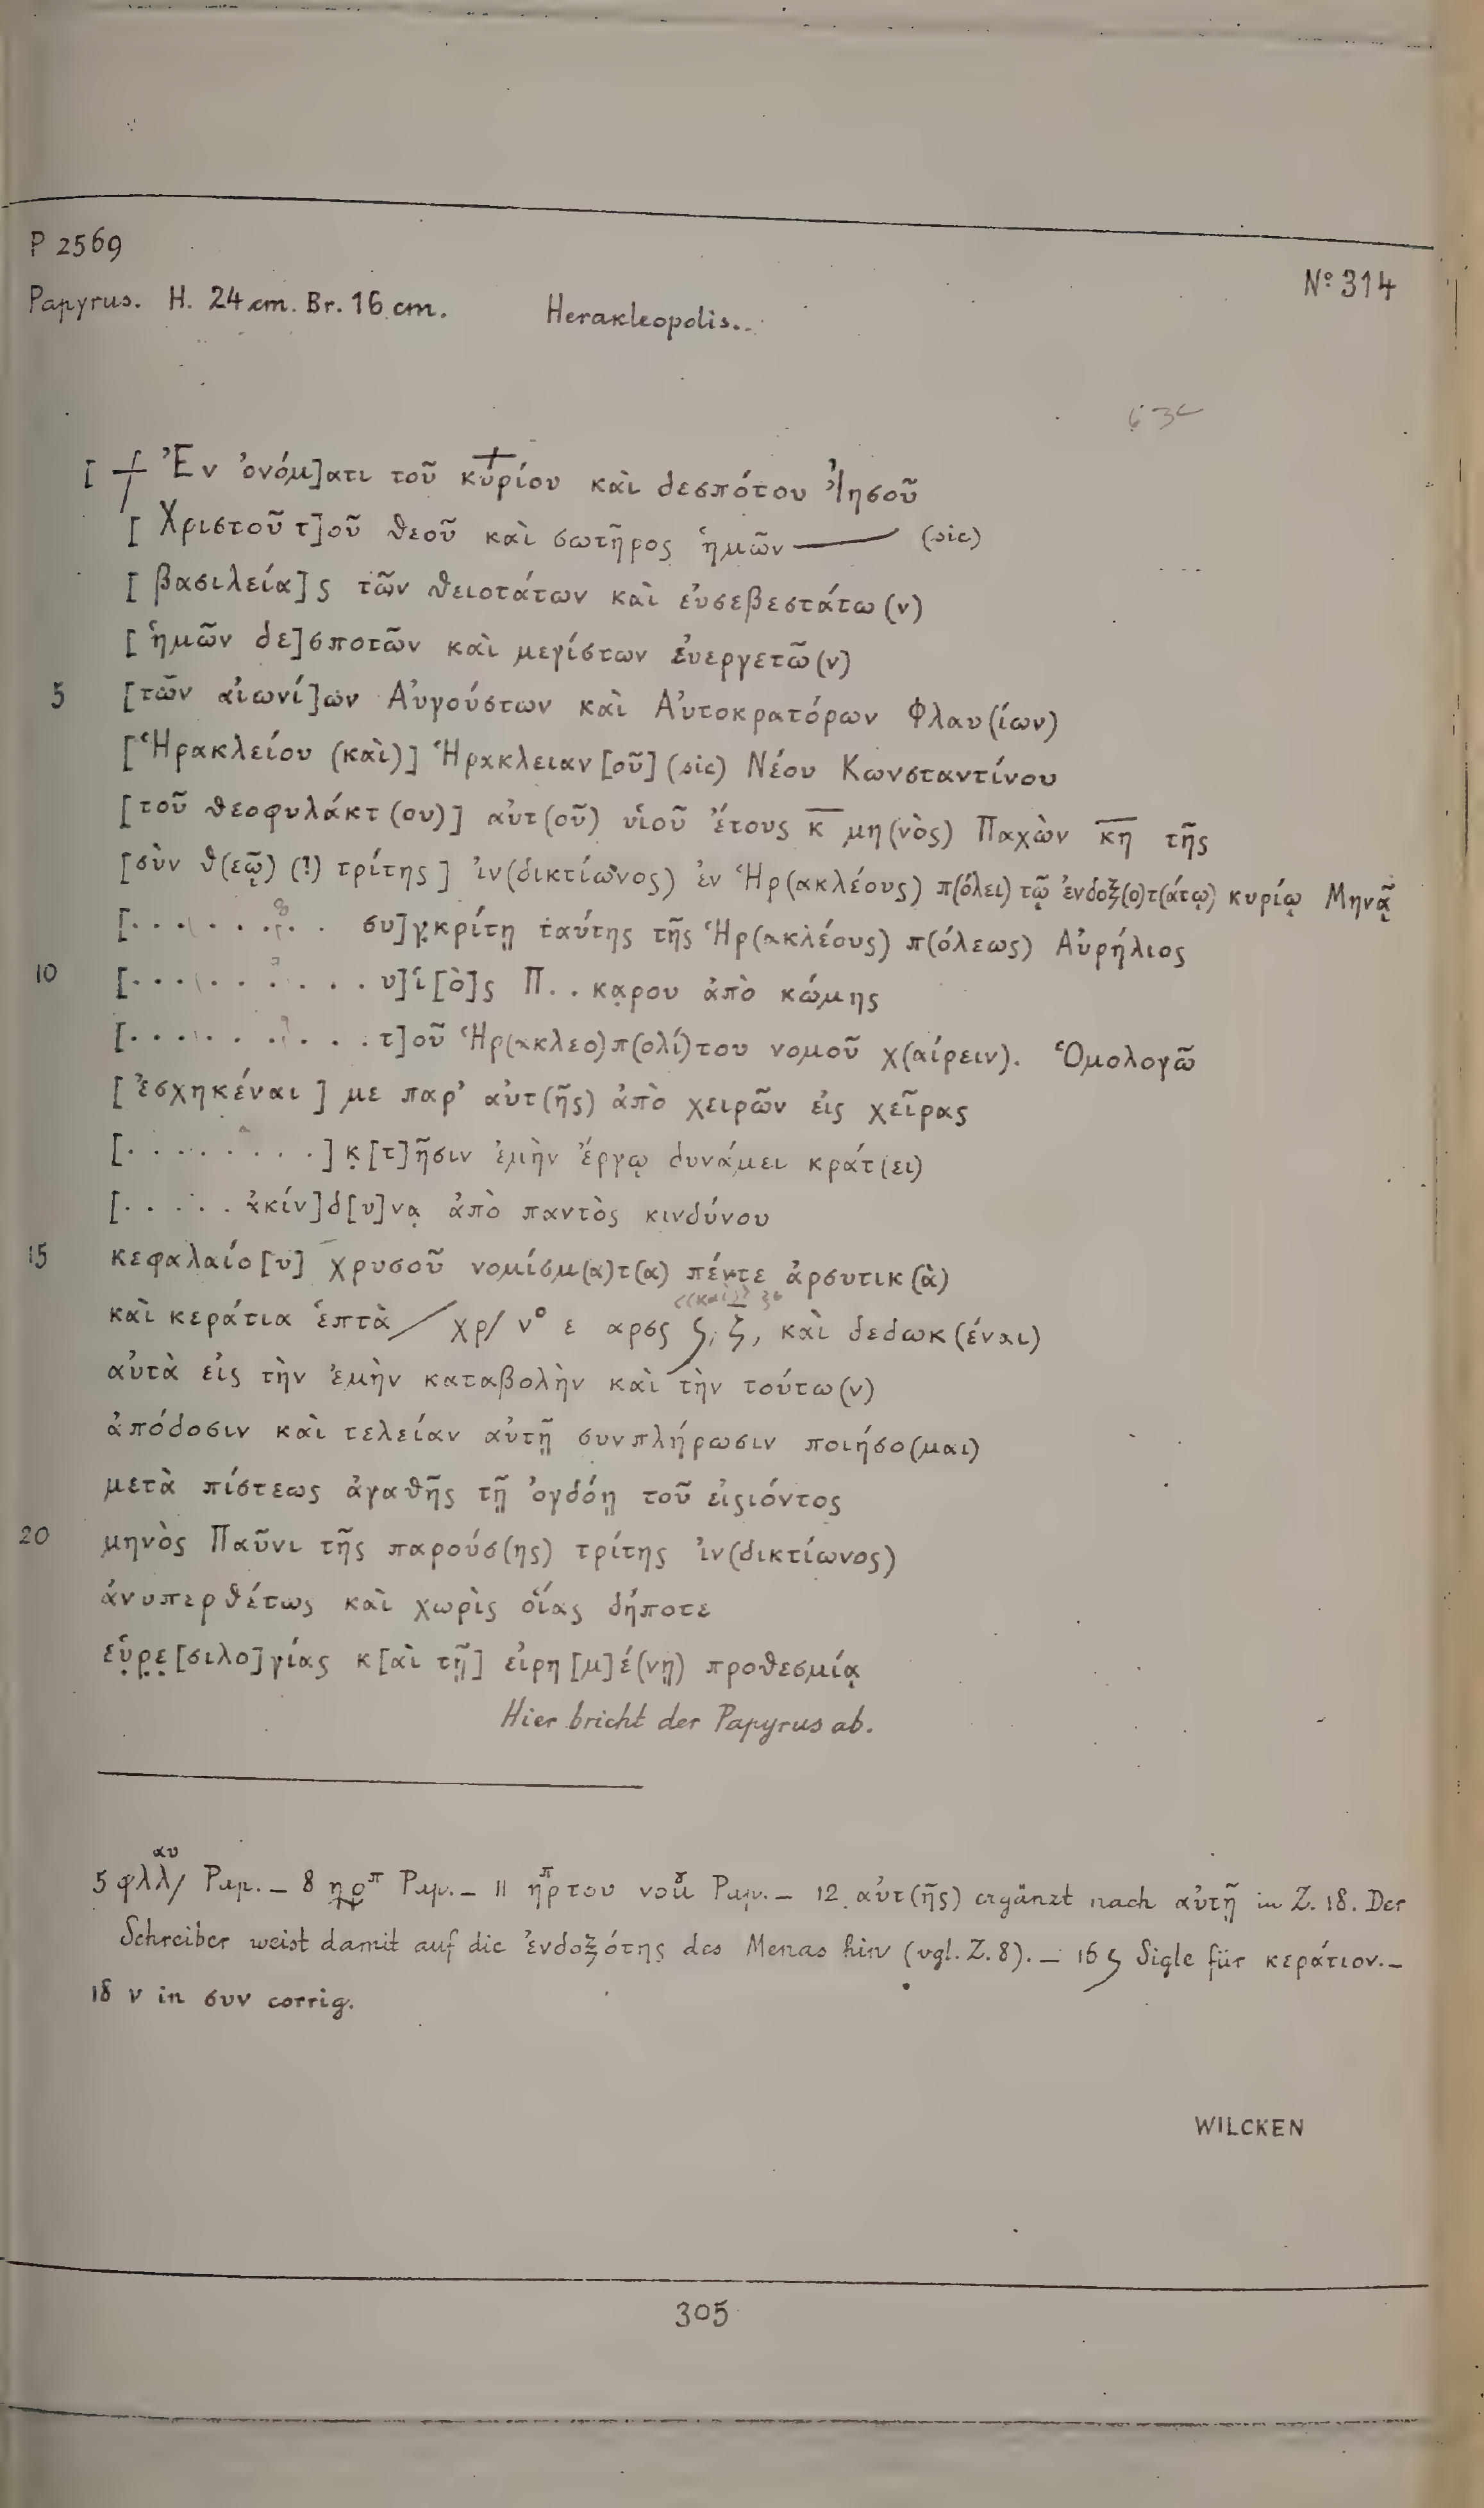 P 2569
Nº 314
Papyrus. H. 24 cm. Br. 16 cm. Herakleopolis.
[ Ἐν ὀνόμ]ατι τοῦ κυρίου καὶ δεσπότου Ἰησοῦ
[ Χριστοῦ τ]οῦ θεοῦ καὶ σωτῆρος ἡμῶν — (sic)
[ βασιλεία]ς τῶν θειοτάτων καὶ εὐσεβεστάτω(ν)
[ ἡμῶν δε]σποτῶν καὶ μεγίστων εὐεργετῶ(ν)
5 [τῶν αἰωνί]ων Αὐγούστων καὶ Αὐτοκρατόρων Φλαυ(ίων)
[Ἡρακλείου (καὶ)] Ἡρακλειαν[οῦ] (sic) Νέου Κωνσταντίνου
[τοῦ θεοφυλάκτ(ου)] αὐτ(οῦ) υἱοῦ ἔτους κ̅ μη(νὸς) Παχὼν κ̅η̅ τῆς
[σὺν θ(εῷ) (!) τρίτης ] ἰν(δικτίωνος) ἐν Ἡρ(ακλέους) π(όλει) τῷ ἐνδοξ(ο)τ(άτῳ) κυρίῳ Μηνᾷ
[. . . . . . . . συ]γκρίτῃ ταύτης τῆς Ἡρ(ακλέους) π(όλεως) Αὐρήλιος
10 [. . . . . . . . . υ]ἱ[ὸ]ς Π. . κα̣ρου ἀπὸ κώμης
[. . . . . . . . . . τ]οῦ Ἡρ(ακλεο)π(ολί)του νομοῦ χ(αίρειν). Ὁμολογῶ
[ ἐσχηκέναι ] με παρ' αὐτ(ῆς) ἀπὸ χειρῶν εἰς χεῖρας
[. . . . . . . . .] κ̣[τ]ῆσιν ἐμὴν ἔργῳ δυνάμει κράτ(ει)
[. . . . . ἀκίν]δ[υ]να̣ ἀπὸ παντὸς κινδύνου
15 κεφαλαίο[υ] χρυσοῦ νομίσμ(α)τ(α) πέντε ἀρσυτικ(ὰ)
καὶ κεράτια ἑπτὰ / χρ/ νº ε αρσς ϛ, ζ̅, καὶ δεδωκ(έναι)
αὐτὰ εἰς τὴν ἐμὴν καταβολὴν καὶ τὴν τούτω(ν)
ἀπόδοσιν καὶ τελείαν αὐτῇ συνπλήρωσιν ποιήσο(μαι)
μετὰ πίστεως ἀγαθῆς τῇ ὀγδόῃ τοῦ εἰςιόντος
20 μηνὸς Παῦνι τῆς παρούσ(ης) τρίτης ἰν(δικτίωνος)
ἀνυπερθέτως καὶ χωρὶς οἵας δήποτε
εὑ̣ρ̣ε̣[σιλο]γίας κ[αὶ τῇ] εἰρη[μ]έ(νῃ) προθεσμίᾳ
Hier bricht der Papyrus ab.
5 φλλ/ αυ Pap. – 8 ηρπ Pap. – 11 ηρπτου νοῦ Pap. – 12 αὐτ(ῆς) ergänzt nach αὐτῇ in Z. 18. Der
Schreiber weist damit auf die ἐνδοξότης des Menas hin (vgl. Z. 8). – 16 ϛ Sigle für κεράτιον. –
18 ν in συν corrig.
WILCKEN
305